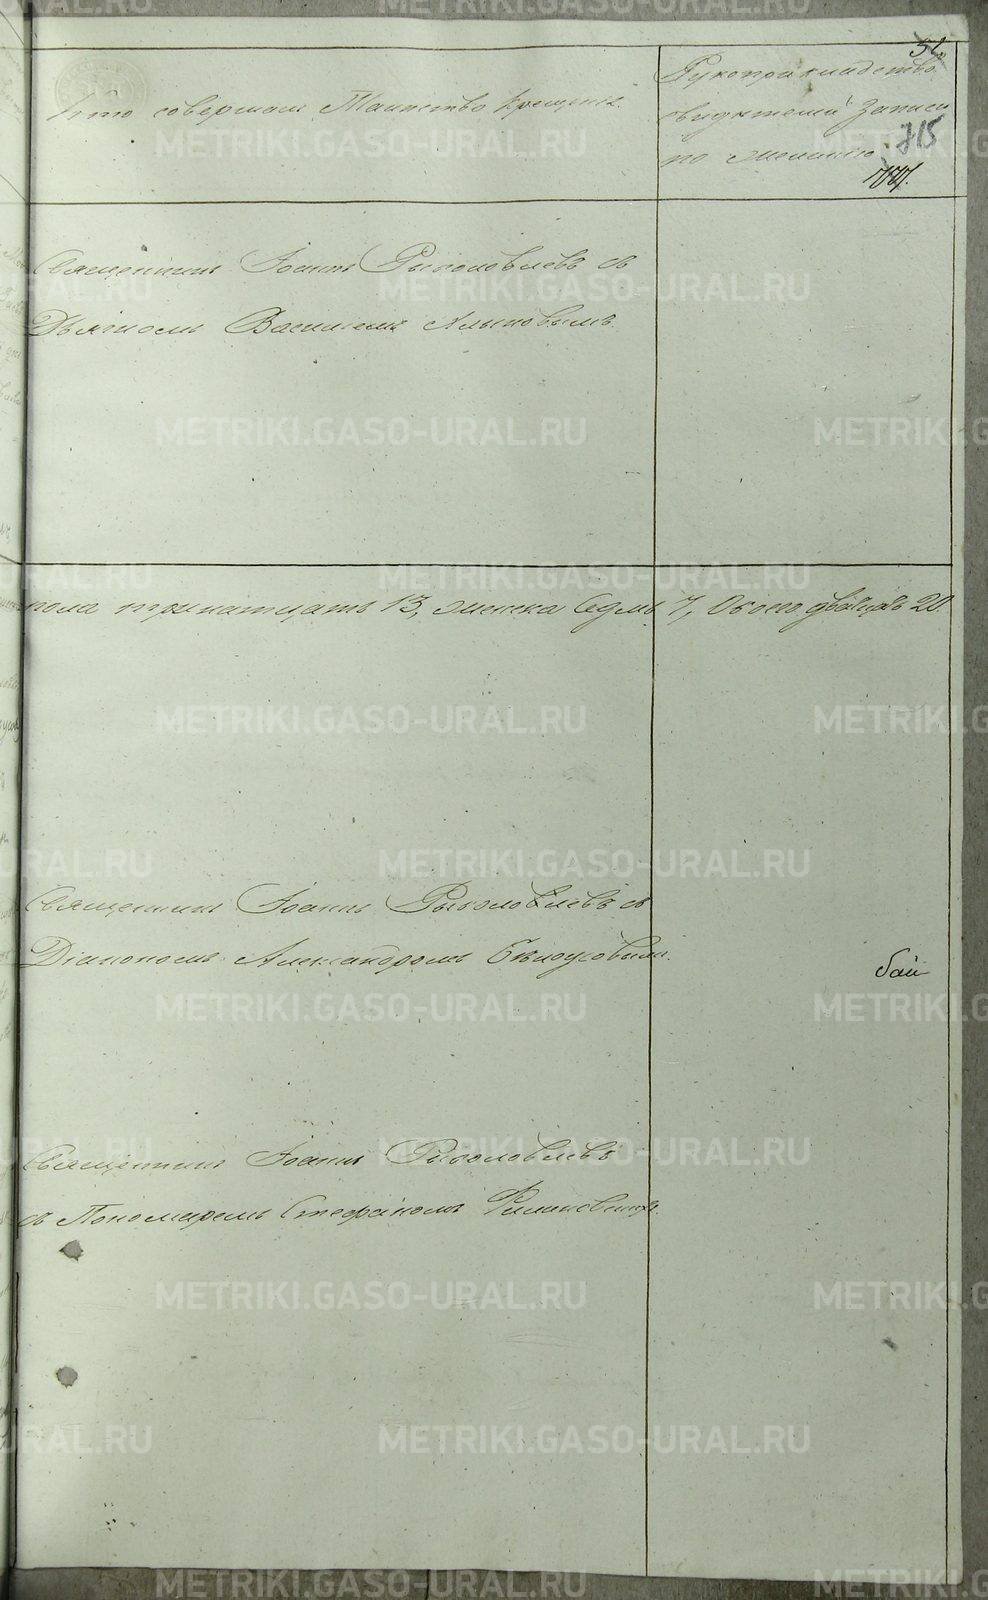 51.
Кто совершалъ Таинство крещенія.
Рукоприкладство
свидѣтелей записи
по желанію.
715
Священникъ Іоаннъ Рыболовлевъ съ
Дьячкомъ Василіемъ
пола тринатцать 13, женска седмь 7, Обоего двадцать 20.
Священникъ Іоаннъ Рыболовлевъ съ
Діакономъ Александромъ Бѣлоусовымъ.
бай
Священникъ Іоаннъ Рыболовлевъ
съ Пономаремъ Стефаномъ
METRIKI.GASO-URAL.RU